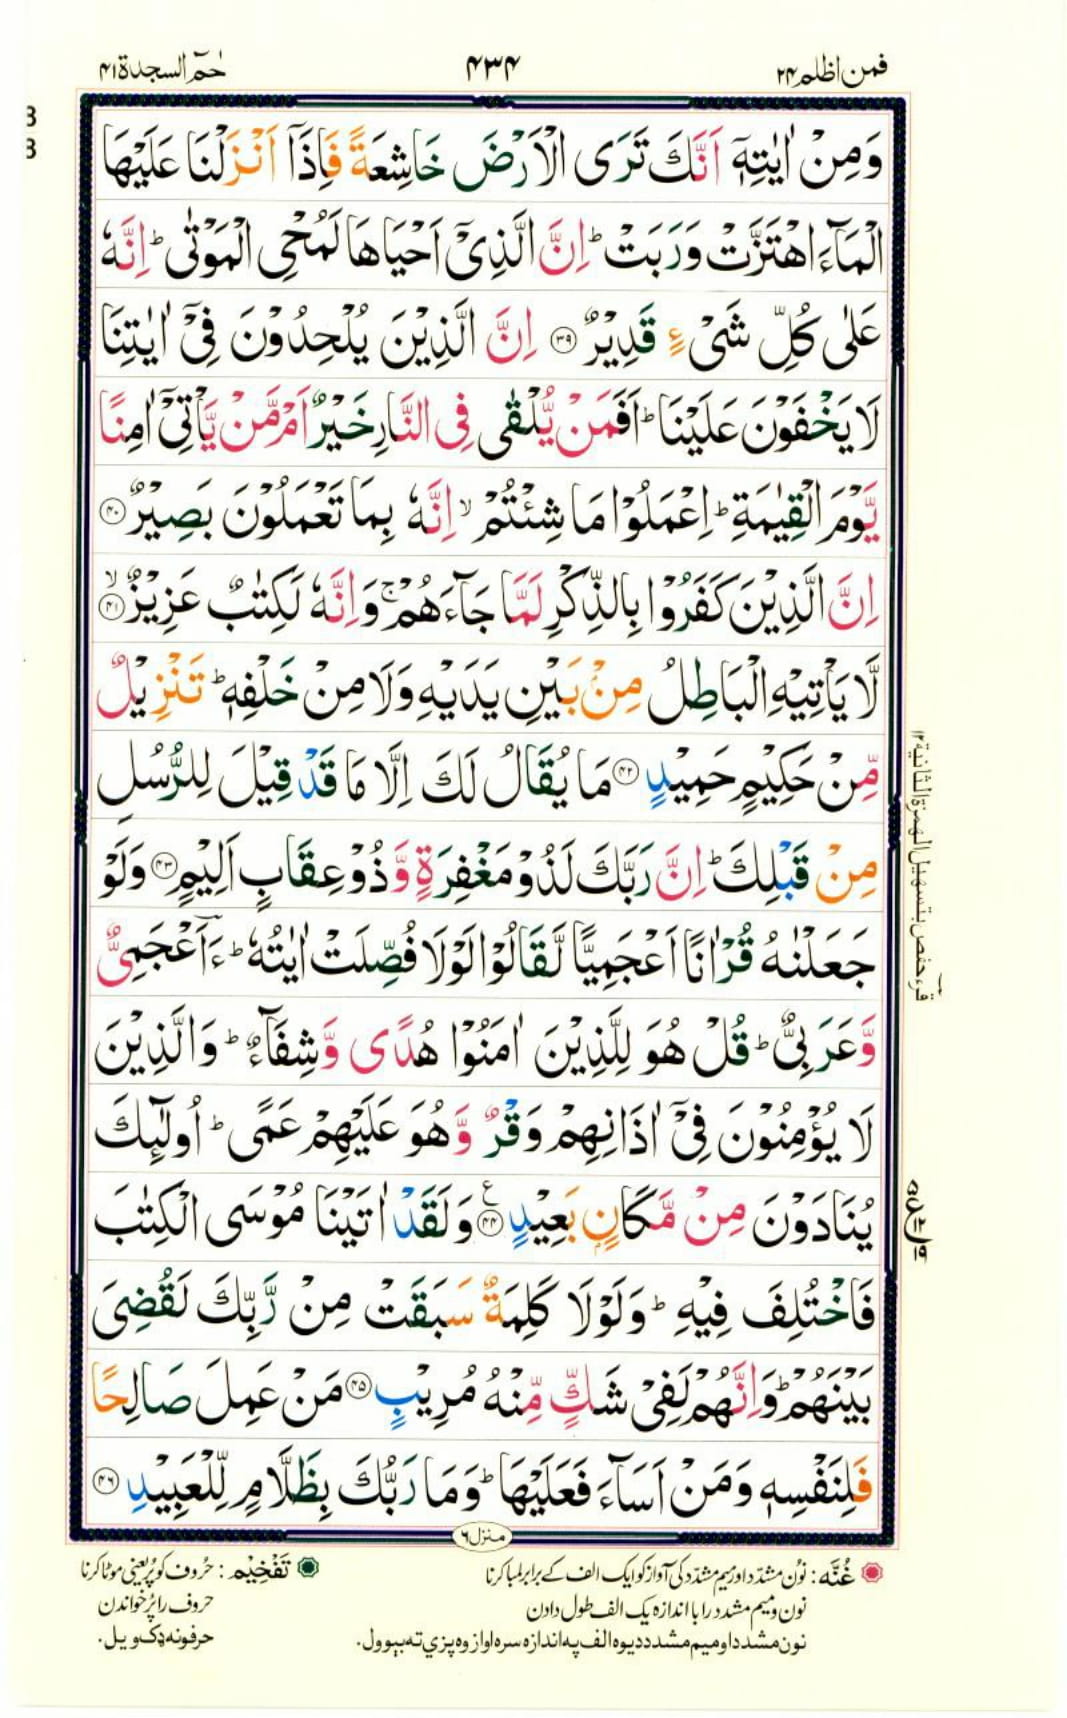 فمن اظلم ۲۴
۴۳۴
حٰمٓ السجدة ۴۱
وَمِنْ اٰيٰتِهٖٓ اَنَّكَ تَرَى الْاَرْضَ خَاشِعَةً فَاِذَآ اَنْزَلْنَا عَلَيْهَا
الْمَآءَ اهْتَزَّتْ وَرَبَتْ ؕ اِنَّ الَّذِيْٓ اَحْيَاهَا لَمُحْيِ الْمَوْتٰى ؕ اِنَّهٗ
عَلٰى كُلِّ شَيْءٍ قَدِيْرٌ ۝۳۹ اِنَّ الَّذِيْنَ يُلْحِدُوْنَ فِيْٓ اٰيٰتِنَا
لَا يَخْفَوْنَ عَلَيْنَا ؕ اَفَمَنْ يُّلْقٰى فِي النَّارِ خَيْرٌ اَمْ مَّنْ يَّاْتِيْٓ اٰمِنًا
يَّوْمَ الْقِيٰمَةِ ؕ اِعْمَلُوْا مَا شِئْتُمْ ۙ اِنَّهٗ بِمَا تَعْمَلُوْنَ بَصِيْرٌ ۝۴۰
اِنَّ الَّذِيْنَ كَفَرُوْا بِالذِّكْرِ لَمَّا جَآءَهُمْ ۚ وَاِنَّهٗ لَكِتٰبٌ عَزِيْزٌ ۙ۝۴۱
لَّا يَاْتِيْهِ الْبَاطِلُ مِنْۢ بَيْنِ يَدَيْهِ وَلَا مِنْ خَلْفِهٖ ؕ تَنْزِيْلٌ
مِّنْ حَكِيْمٍ حَمِيْدٍ ۝۴۲ مَا يُقَالُ لَكَ اِلَّا مَا قَدْ قِيْلَ لِلرُّسُلِ
مِنْ قَبْلِكَ ؕ اِنَّ رَبَّكَ لَذُوْ مَغْفِرَةٍ وَّذُوْ عِقَابٍ اَلِيْمٍ ۝۴۳ وَلَوْ
جَعَلْنٰهُ قُرْاٰنًا اَعْجَمِيًّا لَّقَالُوْا لَوْلَا فُصِّلَتْ اٰيٰتُهٗ ؕ ءَاَعْجَمِيٌّ
وَّعَرَبِيٌّ ؕ قُلْ هُوَ لِلَّذِيْنَ اٰمَنُوْا هُدًى وَّشِفَآءٌ ؕ وَالَّذِيْنَ
لَا يُؤْمِنُوْنَ فِيْٓ اٰذَانِهِمْ وَقْرٌ وَّهُوَ عَلَيْهِمْ عَمًى ؕ اُولٰٓئِكَ
يُنَادَوْنَ مِنْ مَّكَانٍۭ بَعِيْدٍ ۝۴۴ع وَلَقَدْ اٰتَيْنَا مُوْسَى الْكِتٰبَ
فَاخْتُلِفَ فِيْهِ ؕ وَلَوْلَا كَلِمَةٌ سَبَقَتْ مِنْ رَّبِّكَ لَقُضِيَ
بَيْنَهُمْ ؕ وَاِنَّهُمْ لَفِيْ شَكٍّ مِّنْهُ مُرِيْبٍ ۝۴۵ مَنْ عَمِلَ صَالِحًا
فَلِنَفْسِهٖ وَمَنْ اَسَآءَ فَعَلَيْهَا ؕ وَمَا رَبُّكَ بِظَلَّامٍ لِّلْعَبِيْدِ ۝۴۶
قرء حفص بتسهيل الهمزة الثانية ۱۲
منزل ۶
غُنَّه: نوُن مشدّد اور میم مشدّد کی آواز کو ایک الف کے برابر لمبا کرنا
نون و میم مشدد را با اندازه یک الف طول دادن
نون مشدد او میم مشدد د یوه الف په اندازه سره اواز وه پزې ته بېوول.
تَفْخِيْم: حُروف کو پُر یعنی موٹا کرنا
حروف را پُر خواندن
حرفونه ډک ویل.